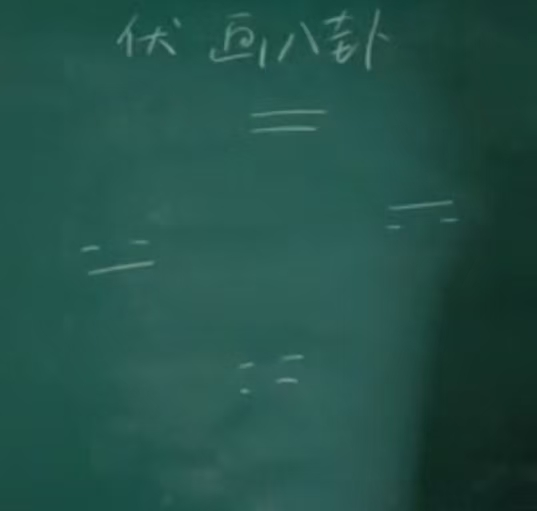 伏画八卦